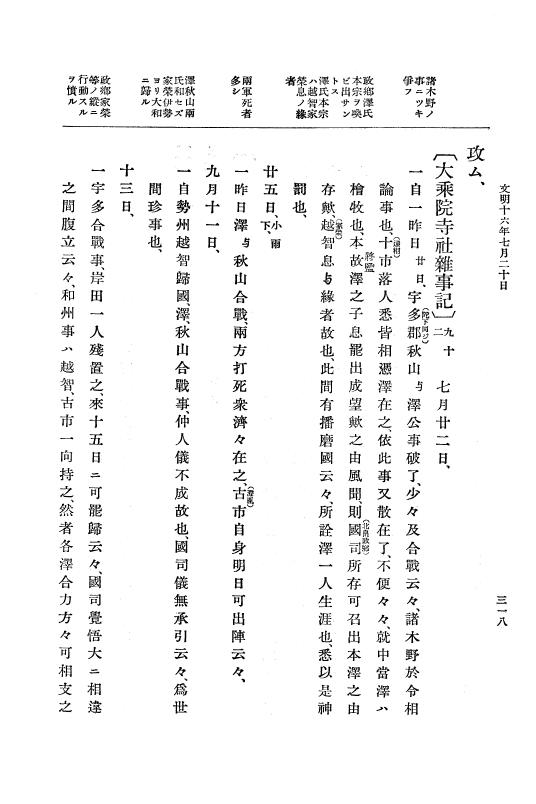 文明十六年七月二十日
三一八
諸木野ノ
事ニツキ
爭フ
政郷澤氏
本宗ヲ喚
ビ出サン
トス
澤氏本宗
ハ越智家
榮息ノ緣
者
兩軍死者
多シ
澤秋山兩
氏和セズ
家榮伊勢
ヨリ大和
ニ歸ル
政郷家榮
等ノ縱ニ
行動スル
ヲ憤ル
攻ム、
〔大乘院寺社雜事記〕九十二 七月廿二日、
一自一昨日廿日、宇多郡(陀下同ジ)秋山与澤公事破了、少々及合戰云々、諸木野於令相
論事也、十市(遠相)落人悉皆相憑澤在之、依此事又散在了、不便々々、就中當澤ハ
檜牧也、本故澤之子息罷出成望歟之由風聞、則國司(北畠政郷)所存可召出本澤之由
存歟、越智(家榮)息与緣者故也、此間有播磨國云々、所詮澤一人生涯也、悉以是神
罰也、
廿五日、小雨下、
一昨日澤与秋山合戰、兩方打死衆濟々在之、古市(澄胤)自身明日可出陣云々、
九月十一日、
一自勢州越智歸國、澤、秋山合戰事、仲人儀不成故也、國司儀無承引云々、爲世
間珍事也、
十三日、
一宇多合戰事、岸田一人殘置之、來十五日ニ可罷歸云々、國司覺悟大ニ相違
之間腹立云々、和州事ハ越智、古市一向持之、然者各澤合力方々可相支之